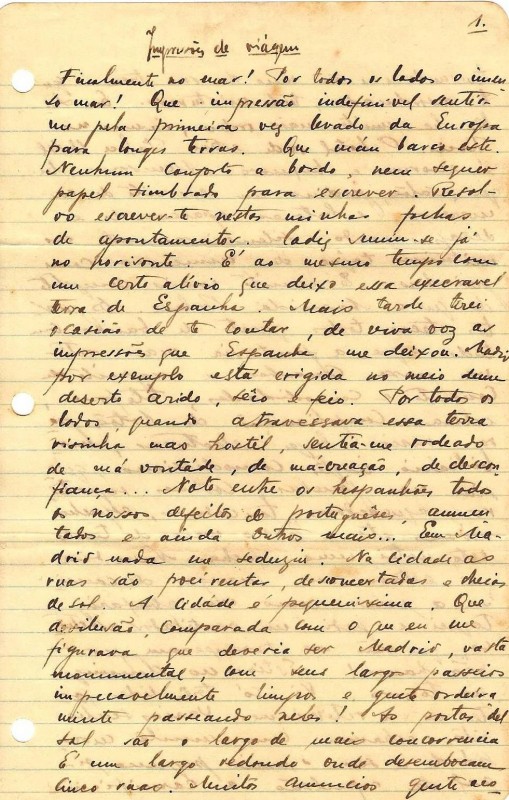 1.
Impressões de viágem
Finalmente no mar! Por todos os lados o imen
so mar! Que impressão indefinivel sentir-
me pela primeira vez levado da Europa
para longes terras. Que máu barco este.
Nenhum conforto a bordo, nem sequer
papel timbrado para escrever. Resol-
vo escrever-te nestas minhas folhas
de apontamentos. Cadiz sume-se já
no horisonte. É ao mesmo tempo com
um certo alivio que deixo essa execravel
terra de Espanha. Mais tarde terei
ocasião de te contar, de viva voz as
impressões que Espanha me deixou. Madrid
por exemplo está erigida no meio dum
deserto arido, sêco e feio. Por todos os
lados, quando atravessava essa terra
visinha mas hostil, sentia-me rodeado
de má vontáde, de má-creação, de descon
fiança... Noto entre os hespanhões todos
os nossos defeitos de portuguêses, aumen
tados e ainda outros mais... Em Ma-
drid nada me seduziu. Na cidade as
ruas são poeirentas, desconcertadas e cheias
de sol. A cidáde é pequenissima. Que
desilusão, comparada com o que eu me
figurava que deveria ser Madrid, vasta
monumental, com seus largos passeios
impecavelmente limpos e gente ordeira
mente passeando neles! As portas del
sol são o largo de mais concorrencia
É um largo redondo onde desembocam
cinco ruas. Muitos anuncios gente aco